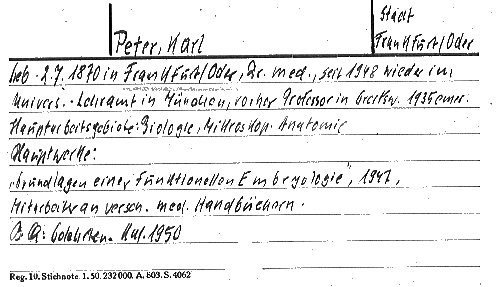 Stadt
Peter, Karl Frankfurt/Oder
geb. 2.7. 1870 in Frankfurt/Oder, Dr. med., seit 1948 wieder im
Univers.-Lehramt in München, vorher Professor in Greifsw. 1935 emer.
Hauptarbeitsgebiete: Biologie, Mikroskop. Anatomie
Hauptwerke:
"Grundlagen einer funktionellen Embryologie", 1947,
Mitarbeiter an versch. med. Handbüchern.
Gelehrten. Kal. 1950
Reg. 10. Stichnote. 1. 50. 232000. A. 803. S. 4062